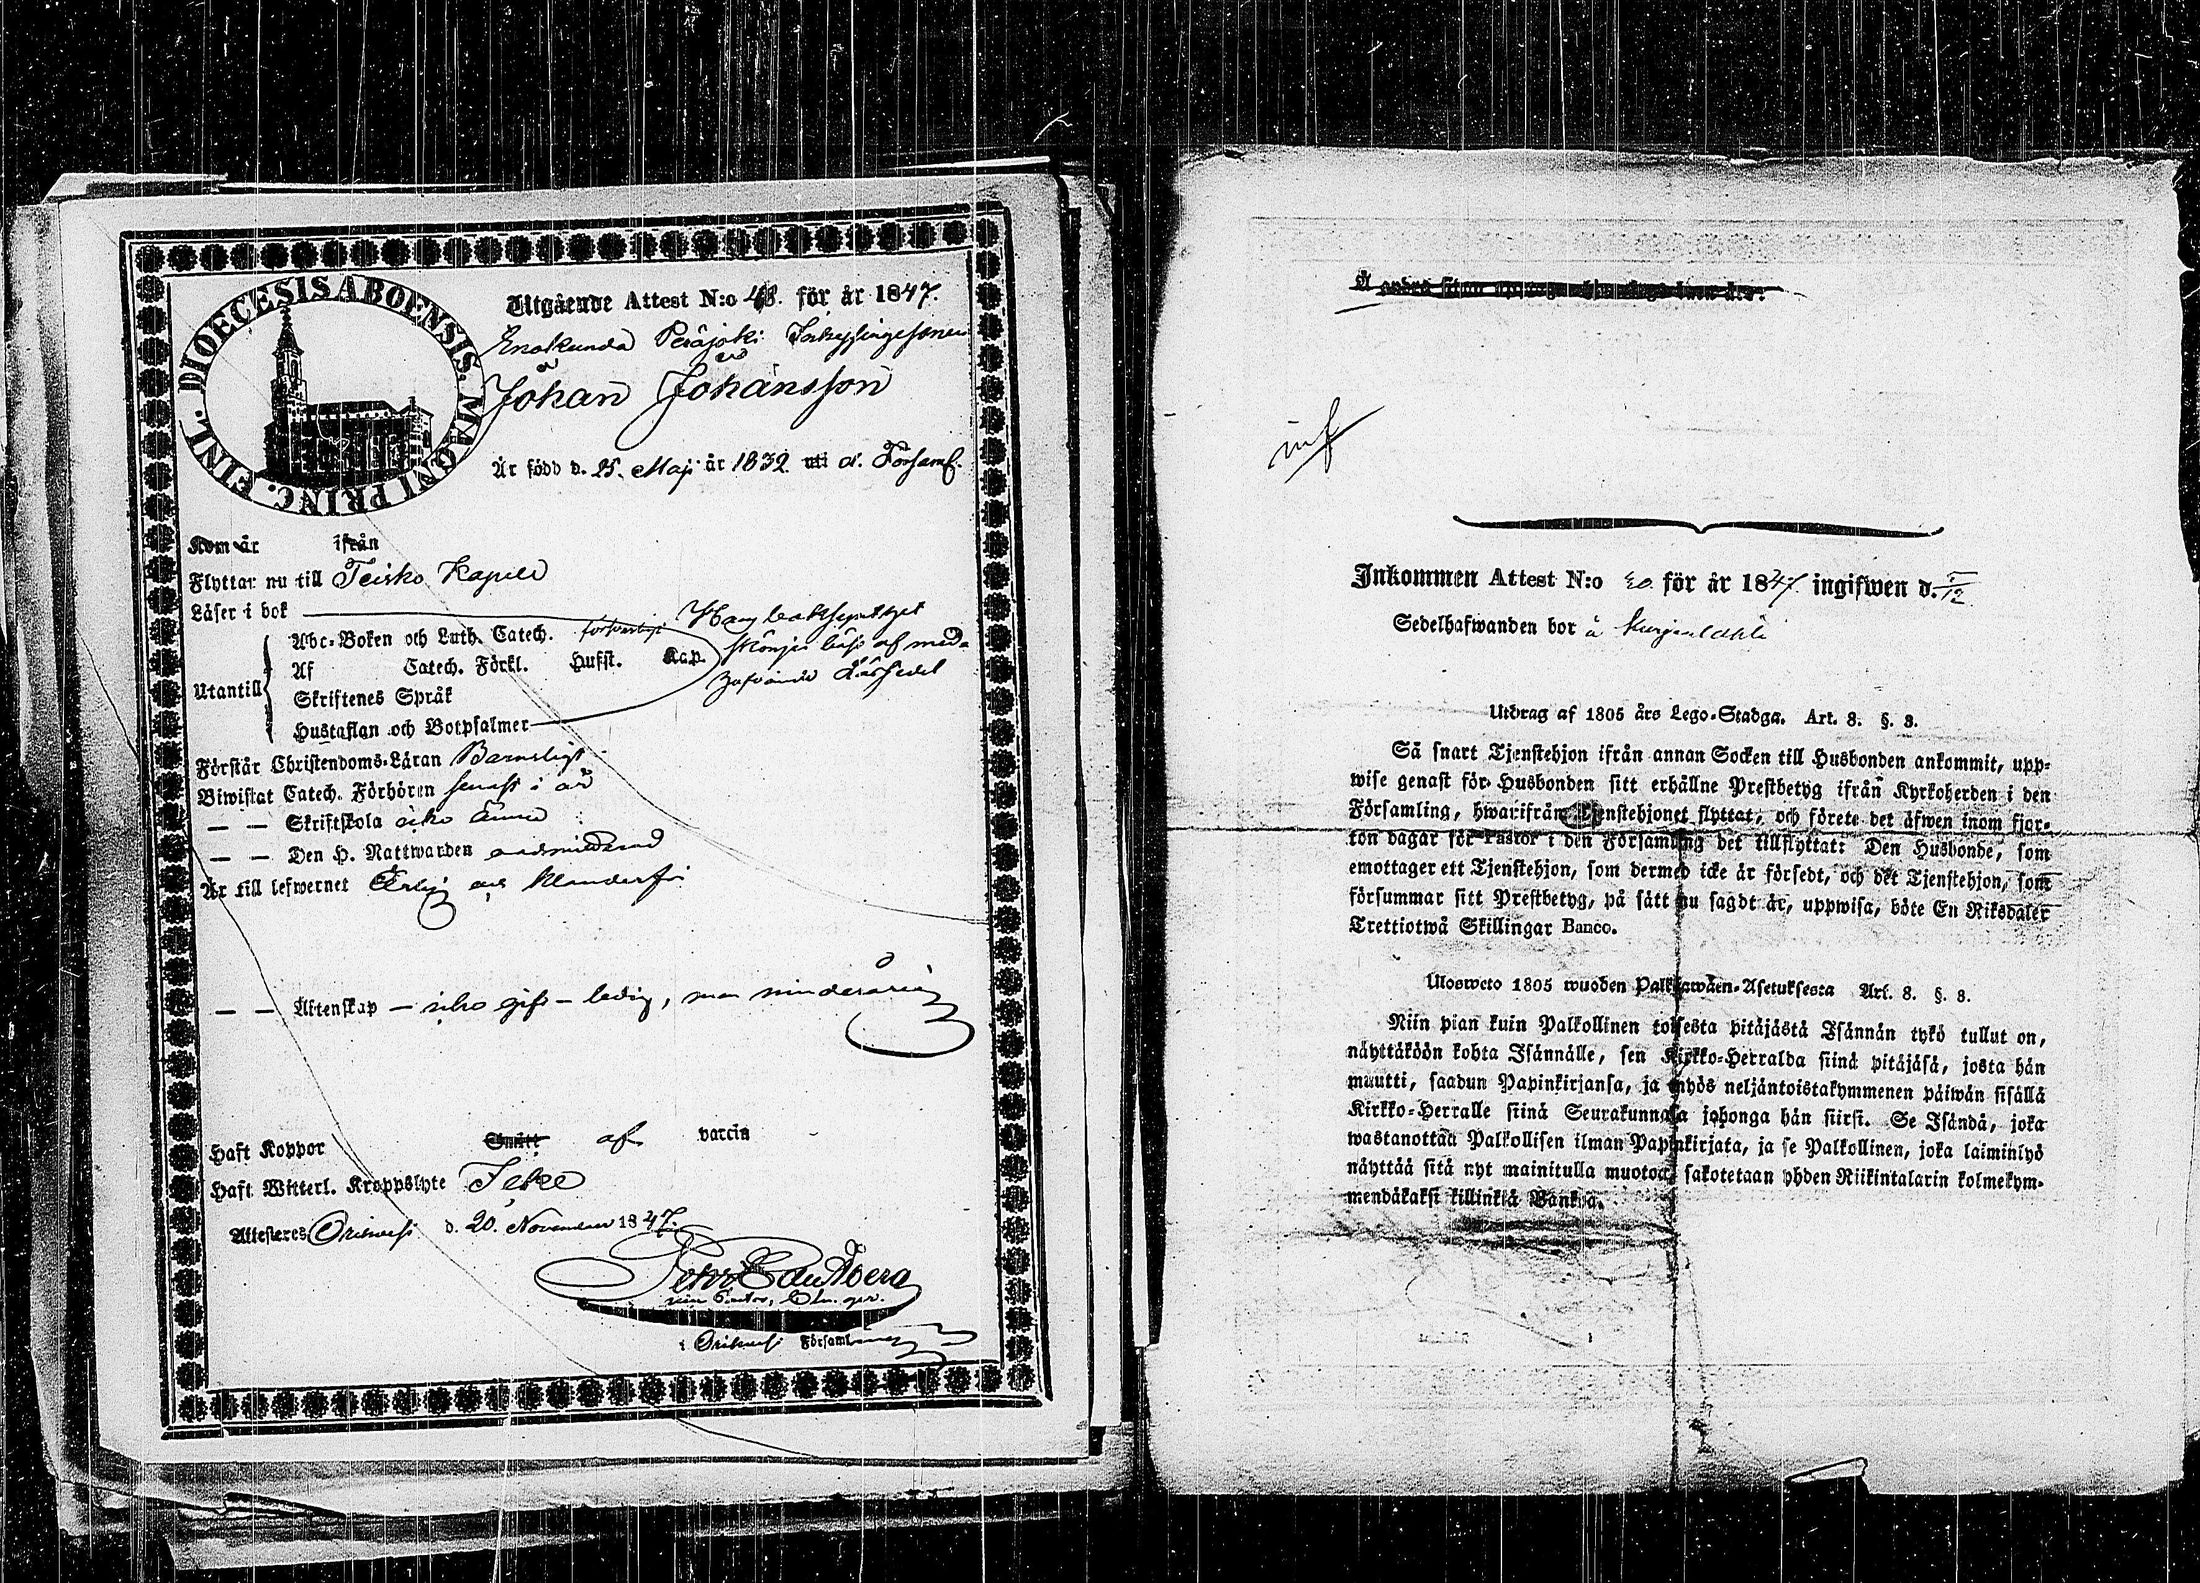 DIOECESIS ABOENSIS. MAGNI PRINC. FINL.
Utgående Attest N:o 48. för år 1847.
Johan Johansson
Är född d. 25. Maj år 1832 uti d. Församl.
Kom år ifrån
Flyttar nu till Teisko Kapell
Läser i bok
Utantill
Abc-Boken och Luth. Catech. försvarligt
Af Catech. Förkl. Hufst. Kap.
Skriftenes Språk
Hustaflan och Botpsalmer
Förstår Christendoms-Läran Barnsligt
Biwistat Catech. Förhören senast i år
— — Skriftskola icke ännu
— — Den H. Nattwarden
Är till lefwernet Ärlig och klanderfri
— — Äktenskap — icke gift — ledig, men minderårig
Haft Koppor Smitt af vaccin
Haft Witterl. Kroppslyte Icke
Attesteras Orivesi d. 20. November 1847.
i Orivesi Församling
Inkommen Attest N:o 20 för år 1847. ingifwen d. 5/12
Sedelhafwanden bor å
Utdrag af 1805 års Lego-Stadga. Art. 8. §. 8.
Så snart Tjenstehjon ifrån annan Socken till Husbonden ankommit, upp-
wise genast för Husbonden sitt erhållne Prestbetyg ifrån Kyrkoherden i den
Församling, hwarifrån Tjenstehjonet flyttat, och förete det äfwen inom fjor-
ton dagar för Pastor i den Församling det tillflyttat: Den Husbonde, som
emottager ett Tjenstehjon, som dermed icke är försedt, och det Tjenstehjon, som
försummar sitt Prestbetyg, på sätt nu sagdt är, uppwisa, böte En Riksdaler
Trettiotwå Skillingar Banco.
Ulosweto 1805 wuoden Palkkawäen-Asetuksesta Art. 8. §. 8.
Niin pian kuin Palkollinen toisesta pitäjästä Isännän tykö tullut on,
näyttäköön kohta Isännälle, sen Kirkko-Herralda siinä pitäjäsä, josta hän
muutti, saadun Papinkirjansa, ja myös neljäntoistakymmenen päiwän sisällä
Kirkko-Herralle siinä Seurakunnasa johonga hän siirsi. Se Isändä, joka
wastanottaa Palkollisen ilman Papinkirjata, ja se Palkollinen, joka laiminlyö
näyttää sitä nyt mainitulla muotoa, sakotetaan yhden Riikintalarin kolmekym-
mendäkaksi killinkiä Bankoa.